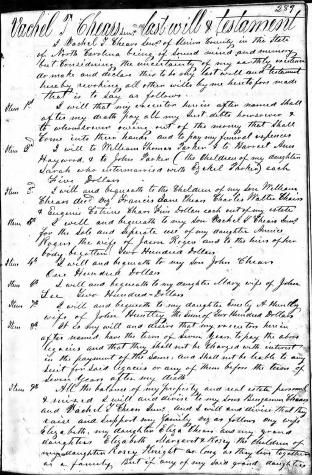 289
Vachel T Chears Senr last will & testament
I Vachel T Chears Senr of Union County in the State
of North Carolina being of Sound mind and memory
but Considering the uncertainty of my earthly existence
do make and declare this to be my last will and testament
hereby revoking all other wills by me heretofore made
that is to say as follows
Item 1st I will that my executor herein after named shall
after my death pay all my just debts however &
to whomsoever owing out of the money that Shall
Come into their hands and to pay my funeral expences
Item 2d I will to William Thomas Parker & to Harriet Ann
Haywood, & to John Parker (the Children of my daughter
Sarah who intermarried with Ezekiel Parker) each
Five Dollars
Item 3d I will and bequeath to the Children of my Son William
Chears decd Viz Francis Jane Chears Charles Walter Chears
& Eugene Chears Five Dollars each out of my estate
I will and bequeath to my Son Vachel T Chears Senr
for the Sole and Seperate use of my daughter Annie
Rogers the wife of Jason Rogers and to the heirs of her
body begotten Two Hundred Dollars
I will and bequeath to my Son John Chears
One Hundred Dollars
Item 6th I will and bequeath to my daughter Mary wife of John
Lee Two Hundred Dollars
Item 7th I will and bequeath to my daughter Emily A Huntley
wife of John Huntley the Sum of Two Hundred Dollars
Item 8th It is my will and desire that my executors herein
after named have the term of Seven Years to pay the above
legacies and that they Shall not be Charged with interest
in the payment of the Same, and Shall not be liable to any
Suit for Said legacies or any of them before the term of
Seven Years after my death
Item 9th All the balance of my property and real estate personal
& mixed I will and devise to my Sons Benjamin Chears
and Vachel T Chears Senr and I will and desire that they
take and support my family viz as follows my wife
Elizabeth, my daughter Eliza Chears and my grand
daughters Elizabeth Margaret & Rosey the children of
my daughter Rosey Height as long as they live together
as a family, But if any of my said grand daughters